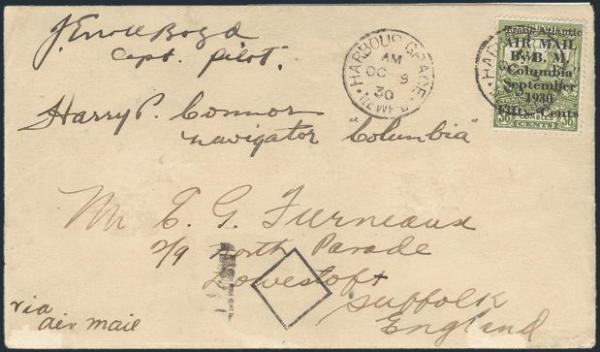 J. Errol Boyd
Capt. Pilot.
Harry P. Connor
navigator "Columbia"
HARBOUR GRACE
AM
OC 9
30
Trans-Atlantic
AIR MAIL
By B. M.
Columbia
September
1930
Fifty Cents
36 CENTS 36
Mr E. G. Furneaux
2/9 North Parade
Lowestoft
Suffolk
England
via
air mail